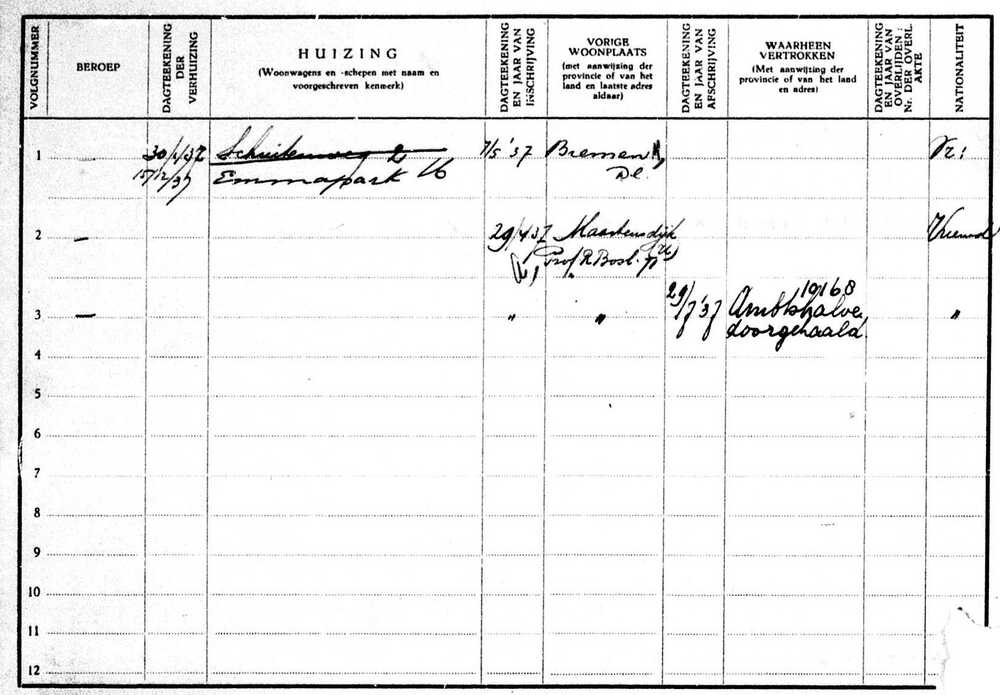 VOLGNUMMER
BEROEP
DAGTEEKENING
DER
VERHUIZING
HUIZING
(Woonwagens en -schepen met naam en
voorgeschreven kenmerk)
DAGTEEKENING
EN JAAR VAN
INSCHRIJVING
VORIGE
WOONPLAATS
(met aanwijzing der
provincie of van het
land en laatste adres
aldaar)
DAGTEEKENING
EN JAAR VAN
AFSCHRIJVING
WAARHEEN
VERTROKKEN
(Met aanwijzing der
provincie of van het land
en adres)
DAGTEEKENING
EN JAAR VAN
OVERLIJDEN;
Nr. DER OVERL.
AKTE
NATIONALITEIT
1 — 2 7/5 '37 Bremen Vr:
15/12/37 Emmapark 16 Dl.
2 — 29/4 37 Maartensdijk Vreemd
Prof. R. Bosl.
29/7 '37 19168
3 — " " Ambtshalve "
doorgehaald.
4
5
6
7
8
9
10
11
12